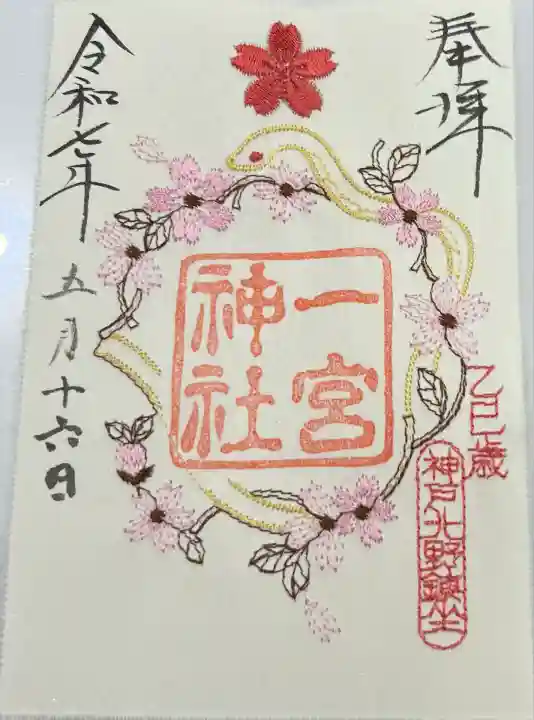 奉拝
一宮
神社
乙巳歳
神戸北野鎮坐
令和七年
五月十六日